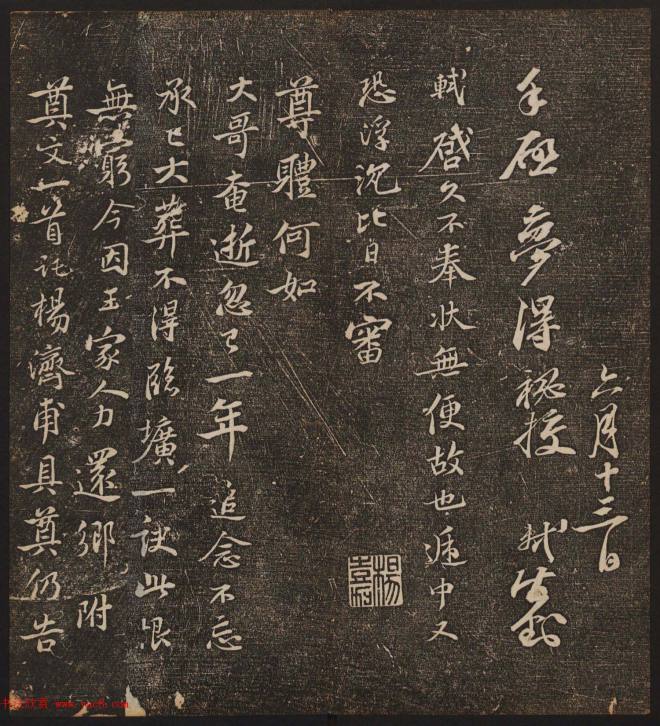 六月十三日
手啟夢得秘校 軾
軾啟久不奉狀無便故也遞中又
恐浮沉比日不審
尊體何如
大哥奄逝忽已一年追念不忘
承已大葬不得臨壙一訣此恨
無窮今因王家人力還鄉附
奠文一首託楊濟甫具奠仍告
书法欣赏 www.yac8.com